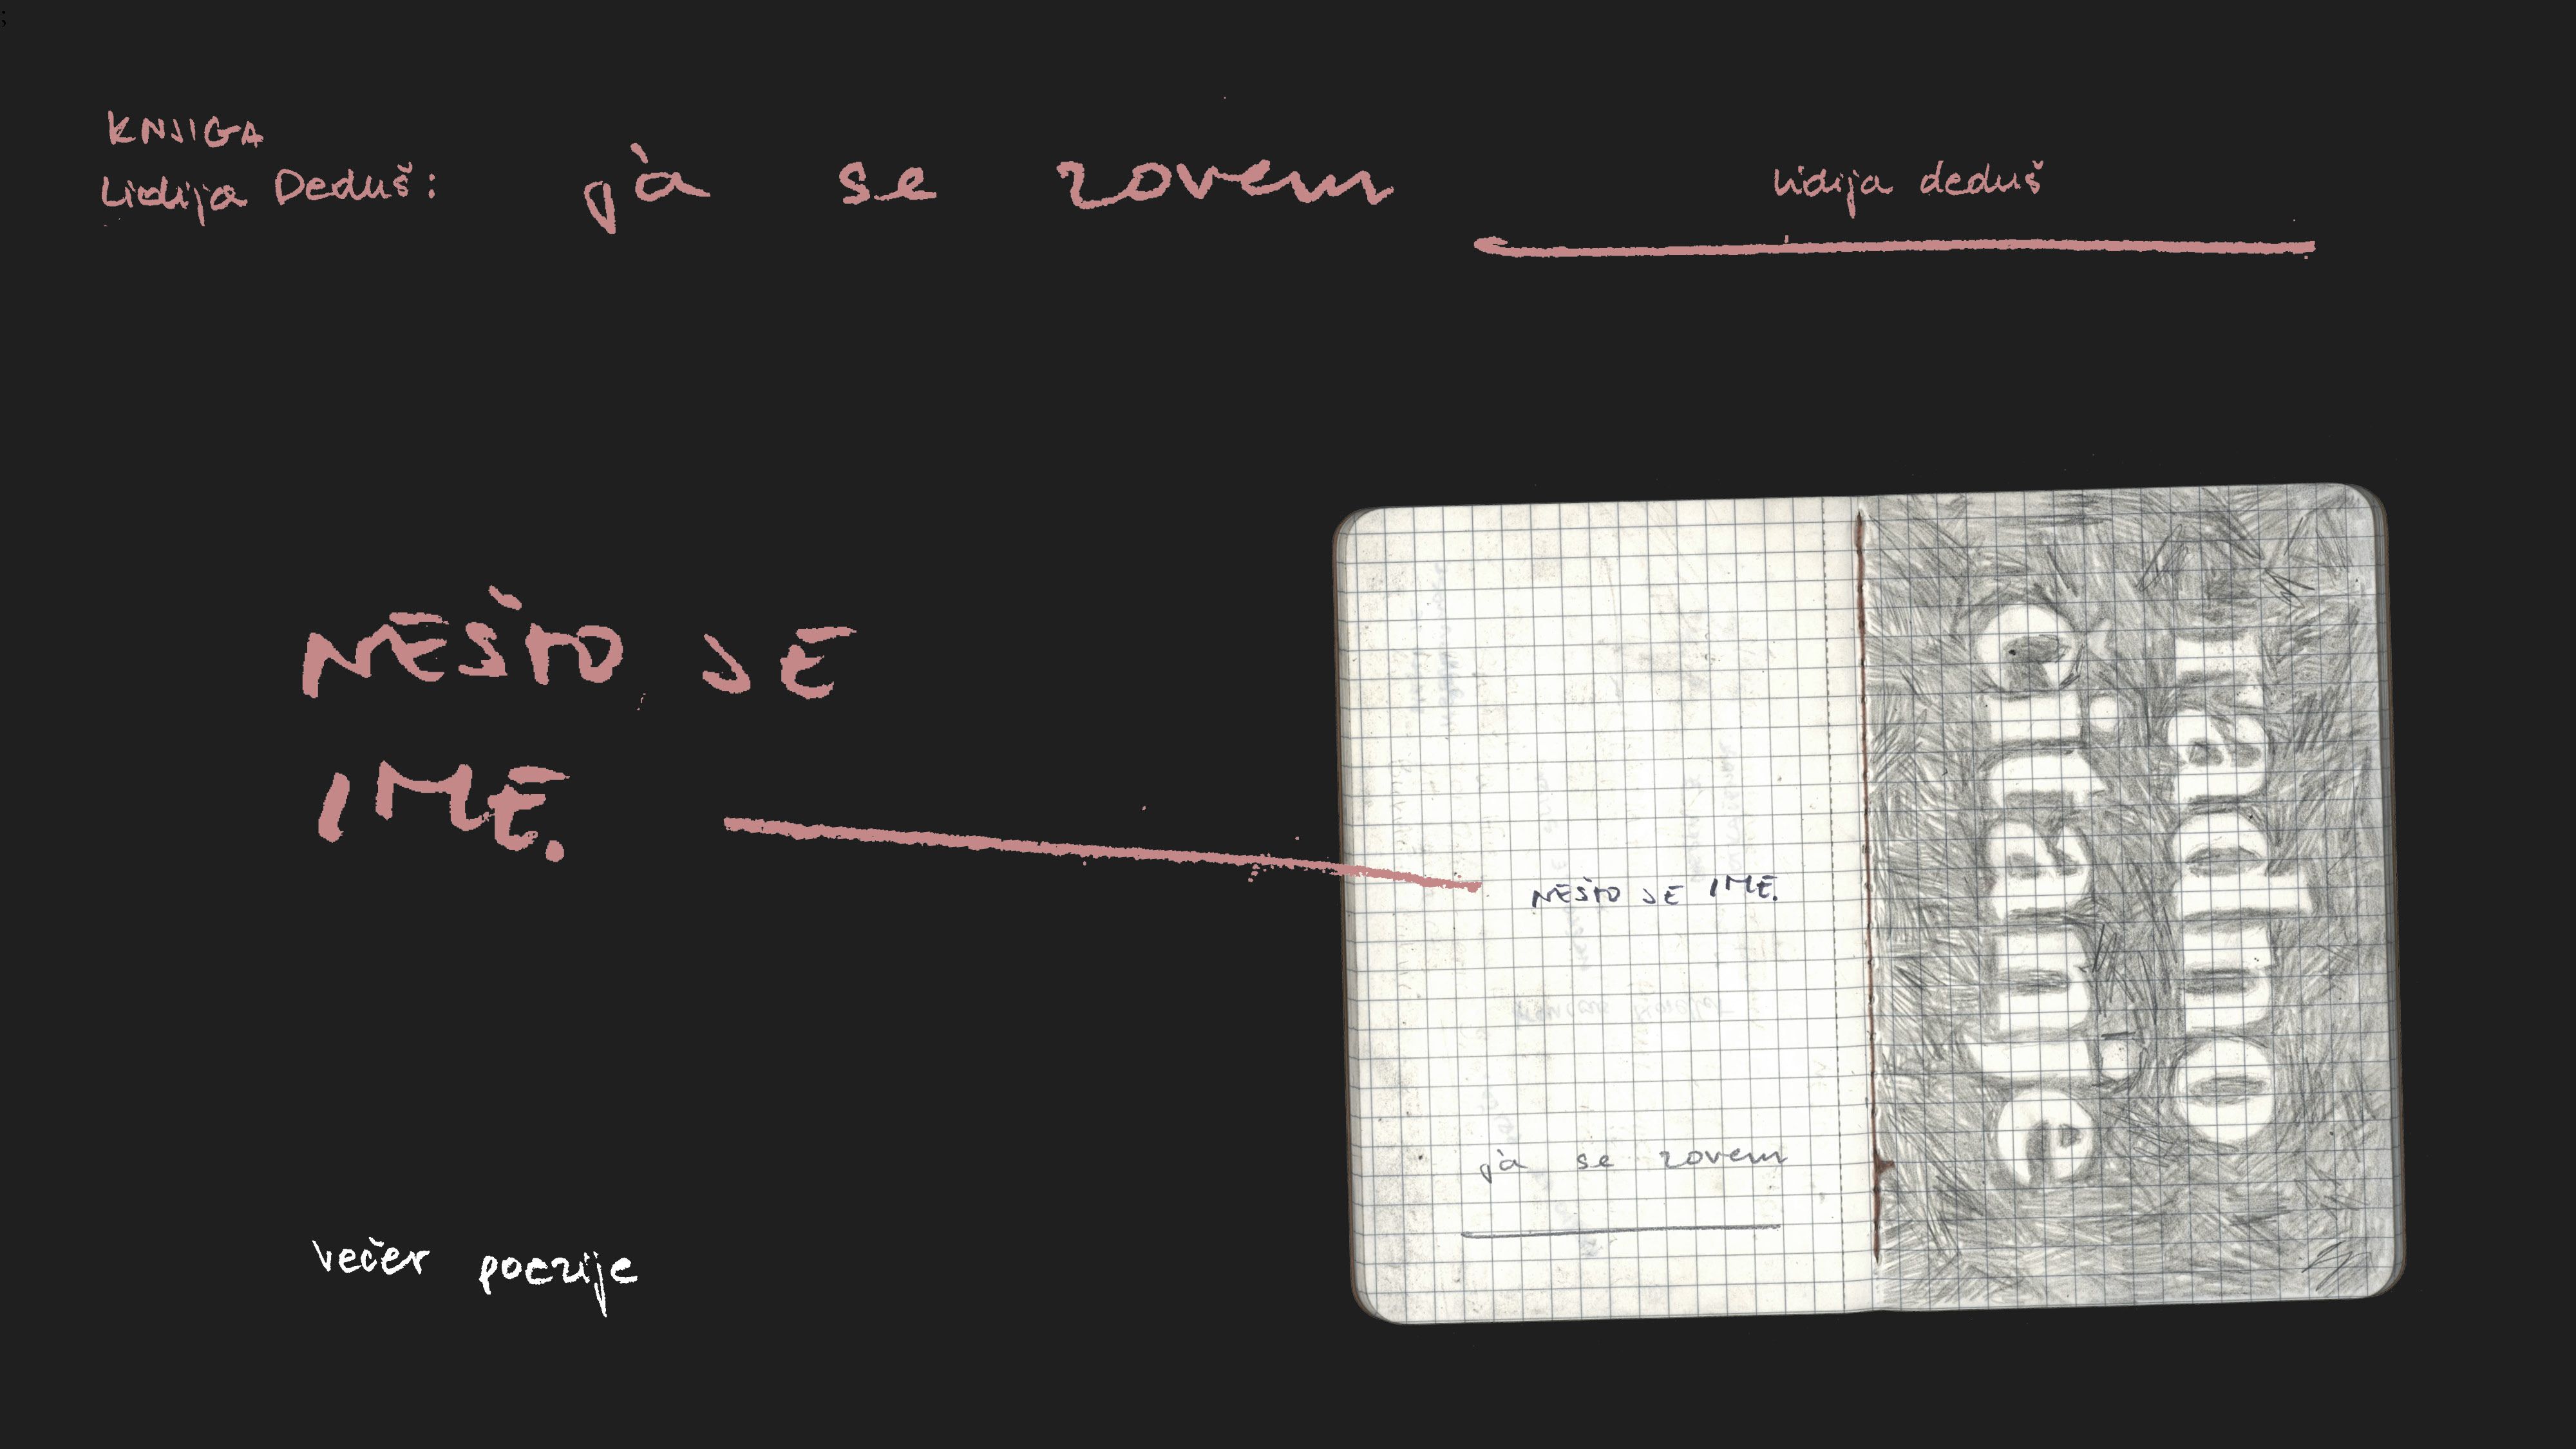 ;
KNJIGA
Lidija Deduš: ja se zovem
lidija deduš
NEŠTO JE
IME.
NEŠTO JE IME.
ja se zovem
večer poezije